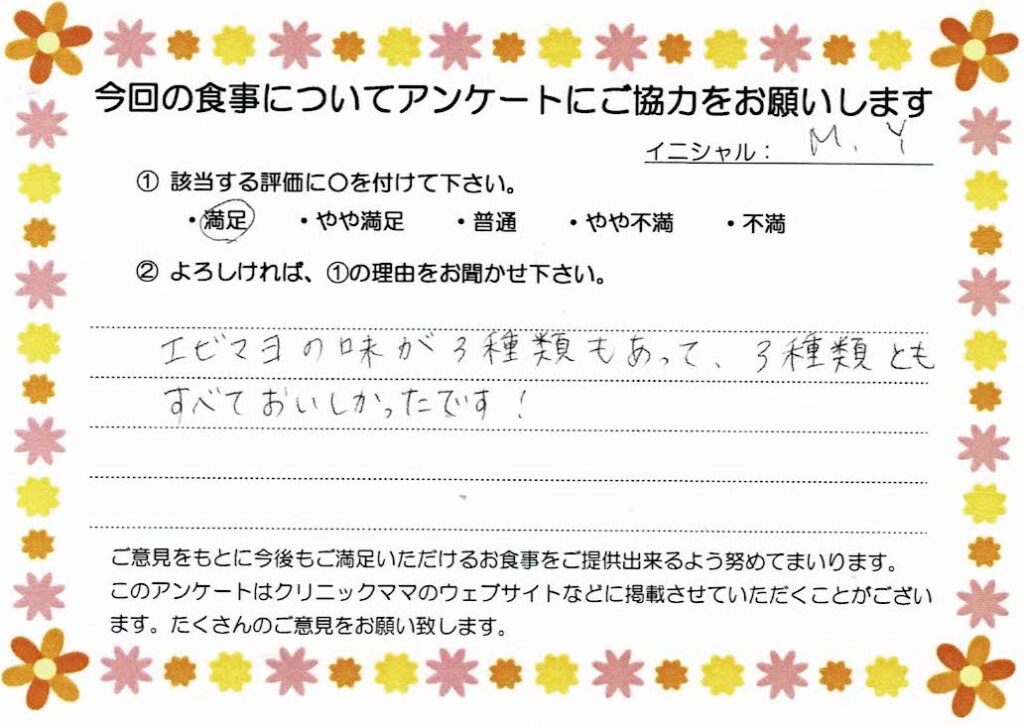 今回の食事についてアンケートにご協力をお願いします
イニシャル： M. Y
① 該当する評価に〇を付けて下さい。
・満足 ・やや満足 ・普通 ・やや不満 ・不満
② よろしければ、①の理由をお聞かせ下さい。
エビマヨの味が3種類もあって、3種類とも
すべておいしかったです！
ご意見をもとに今後もご満足いただけるお食事をご提供出来るよう努めてまいります。
このアンケートはクリニックママのウェブサイトなどに掲載させていただくことがござい
ます。たくさんのご意見をお願い致します。